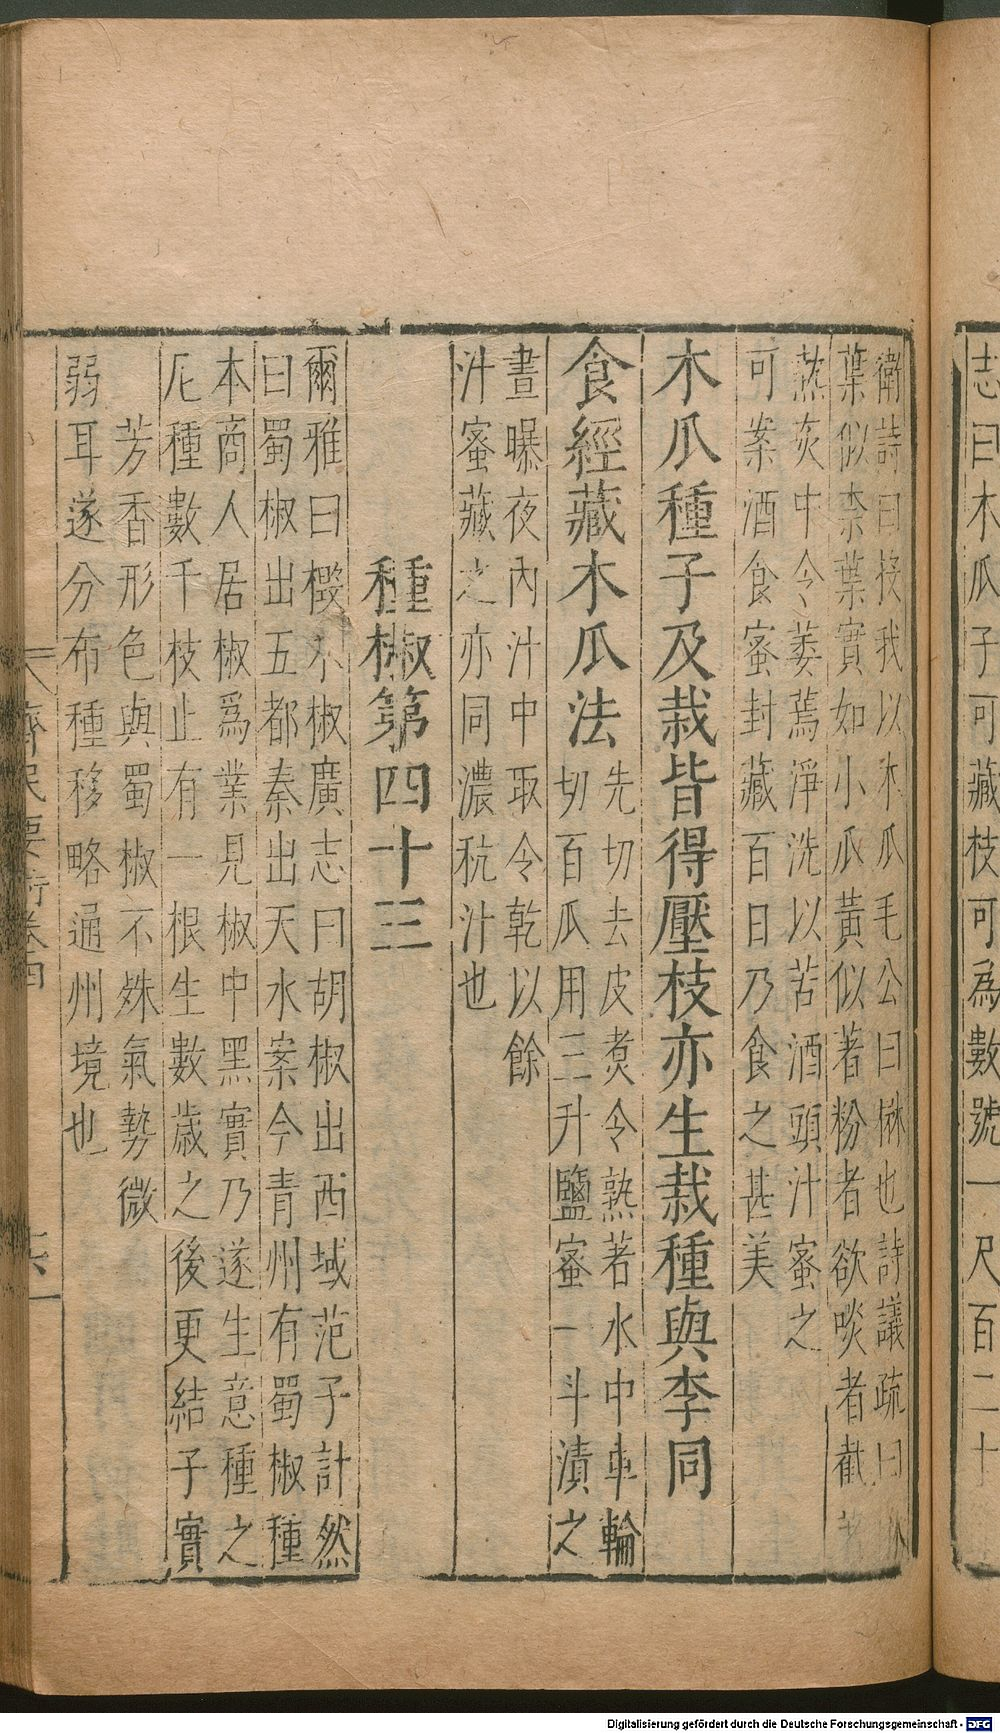 志曰木瓜子可藏枝可為數號一尺百二十
衛詩曰投我以木瓜毛公曰楙也詩議疏曰楙
葉似柰葉實如小瓜黃似著粉者欲啖者截著
熱灰中令萎蔫淨洗以苦酒頭汁蜜之
可案酒食蜜封藏百日乃食之甚美
木瓜種子及栽皆得壓枝亦生栽種與李同
食經藏木瓜法
先切去皮煑令熟著水中車輪
切百瓜用三升鹽蜜一斗漬之
晝曝夜內汁中取令乾以餘
汁蜜藏之亦同濃秔汁也
種椒第四十三
爾雅曰檓大椒廣志曰胡椒出西域范子計然
曰蜀椒出五都秦出天水案今青州有蜀椒種
本商人居椒為業見椒中黑實乃遂生意種之
凡種數千枝止有一根生數歲之後更結子實
芳香形色與蜀椒不殊氣勢微
弱耳遂分布種移略通州境也
齊民要術卷四
六
Digitalisierung gefördert durch die Deutsche Forschungsgemeinschaft - DFG